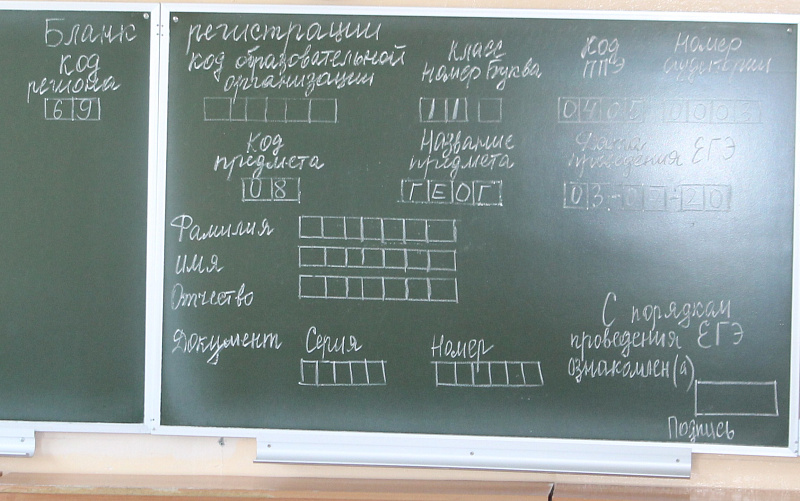 Бланк регистрации
код региона
69
код образовательной организации
класс
номер буква
11
Код ППЭ
0405
Номер аудитории
Код предмета
08
Название предмета
ГЕОГ
Дата проведения ЕГЭ
Фамилия
имя
Отчество
Документ Серия Номер
С порядкам
проведения ЕГЭ
ознакомлен(а)
Подпись